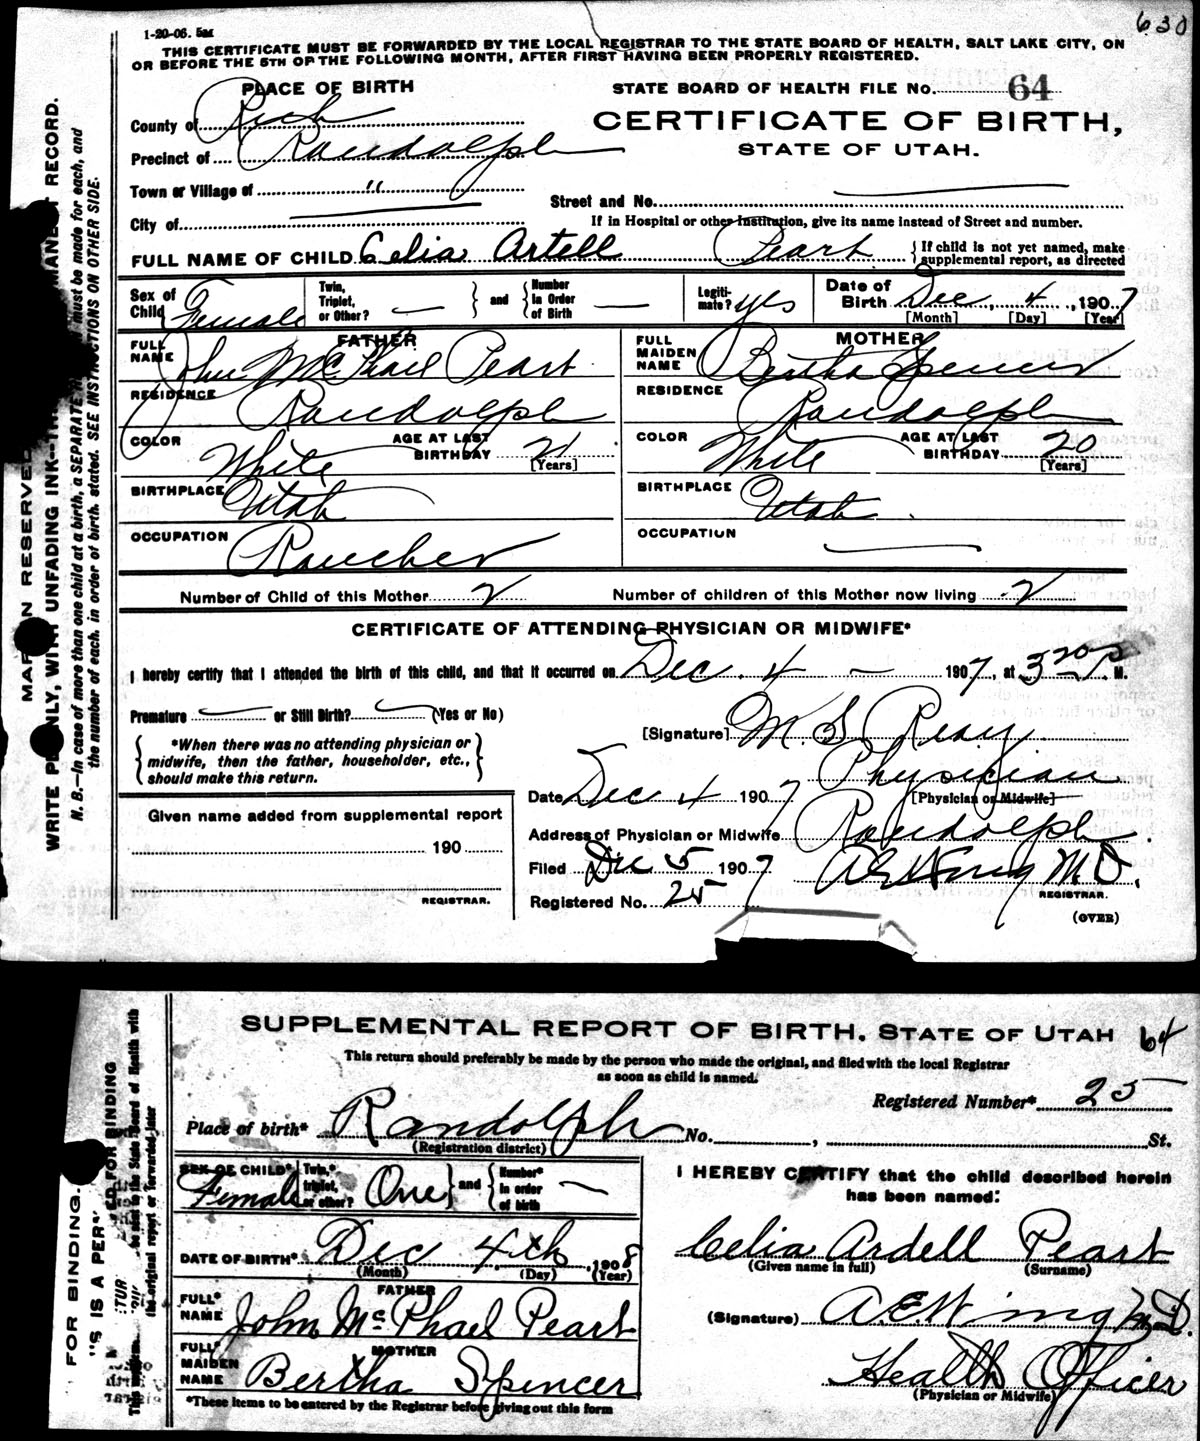 630
1-20-06. 5m
THIS CERTIFICATE MUST BE FORWARDED BY THE LOCAL REGISTRAR TO THE STATE BOARD OF HEALTH, SALT LAKE CITY, ON
OR BEFORE THE 5TH OF THE FOLLOWING MONTH, AFTER FIRST HAVING BEEN PROPERLY REGISTERED.
PLACE OF BIRTH
STATE BOARD OF HEALTH FILE No. 64
County of Rich
CERTIFICATE OF BIRTH,
Precinct of Randolph
STATE OF UTAH.
Town or Village of "
Street and No.
City of
If in Hospital or other Institution, give its name instead of Street and number.
FULL NAME OF CHILD Celia Artell Peart { If child is not yet named, make supplemental report, as directed
Sex of Child Female Twin, Triplet, or Other? — } and { Number in Order of Birth — Legitimate? yes Date of Birth Dec 4, 1907
[Month] [Day] [Year]
FATHER MOTHER
FULL NAME John McPhael Peart FULL MAIDEN NAME Bertha Spencer
RESIDENCE Randolph RESIDENCE Randolph
COLOR White AGE AT LAST BIRTHDAY 21 [Years] COLOR White AGE AT LAST BIRTHDAY 20 [Years]
BIRTHPLACE Utah BIRTHPLACE Utah
OCCUPATION Rancher OCCUPATION —
Number of Child of this Mother 2 Number of children of this Mother now living 2
CERTIFICATE OF ATTENDING PHYSICIAN OR MIDWIFE*
I hereby certify that I attended the birth of this child, and that it occurred on Dec. 4 — 1907, at 3 20 P. M.
Premature — or Still Birth? — (Yes or No)
[Signature] M. S. Reay
*When there was no attending physician or
midwife, then the father, householder, etc.,
should make this return.
Physician
Date Dec 4 1907 [Physician or Midwife]
Given name added from supplemental report
190
REGISTRAR.
Address of Physician or Midwife Randolph
Filed Dec 5 1907 A E Wing M.D.
REGISTRAR.
Registered No. 25
(OVER)
MARGIN RESERVED
WRITE PLAINLY, WITH UNFADING INK—THIS IS A PERMANENT RECORD.
N. B.—In case of more than one child at a birth, a SEPARATE must be made for each, and
the number of each, in order of birth, stated. SEE INSTRUCTIONS ON OTHER SIDE.
SUPPLEMENTAL REPORT OF BIRTH, STATE OF UTAH 64
This return should preferably be made by the person who made the original, and filed with the local Registrar
as soon as child is named.
Registered Number* 25
Place of birth* Randolph No. , St.
(Registration district)
SEX OF CHILD* Female Twin,* triplet, or other? One } and { Number* in order of birth —
I HEREBY CERTIFY that the child described herein
has been named:
DATE OF BIRTH* Dec 4th, 1908
(Month) (Day) (Year)
Celia Ardell Peart
(Given name in full) (Surname)
FATHER
FULL* NAME John McPhael Peart
(Signature) A.E. Wing M.D.
MOTHER
FULL* MAIDEN NAME Bertha Spencer
Health Officer
(Physician or Midwife)
*These items to be entered by the Registrar before giving out this form
FOR BINDING.
"S IS A PER
ED FOR BINDING
be sent to the State Board of Health with
the original report or forwarded later